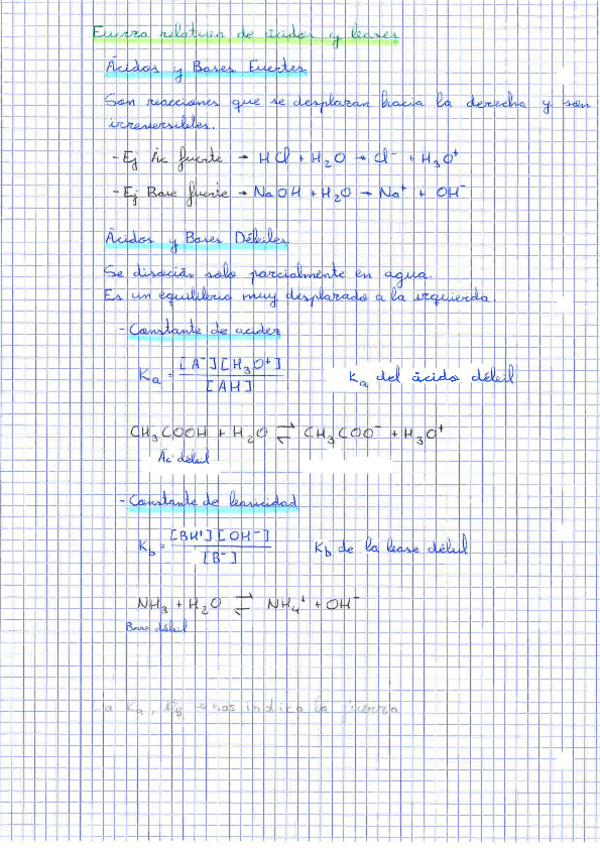 Fuerza relativa de ácidos y bases
Ácidos y Bases Fuertes
Son reacciones que se desplazan hacia la derecha y son
irreversibles.
- Ej Ác fuerte → HCl + H₂O → Cl⁻ + H₃O⁺
- Ej Base fuerte → NaOH + H₂O → Na⁺ + OH⁻
Ácidos y Bases Débiles
Se disocian solo parcialmente en agua.
Es un equilibrio muy desplazado a la izquierda.
- Constante de acidez
Kₐ = [A⁻][H₃O⁺] / [AH] Kₐ del ácido débil
CH₃COOH + H₂O ⇌ CH₃COO⁻ + H₃O⁺
Ác débil
- Constante de basicidad
K_b = [BH⁺][OH⁻] / [B⁻] K_b de la base débil
NH₃ + H₂O ⇌ NH₄⁺ + OH⁻
Base débil
La Kₐ, K_b → nos indica la fuerza